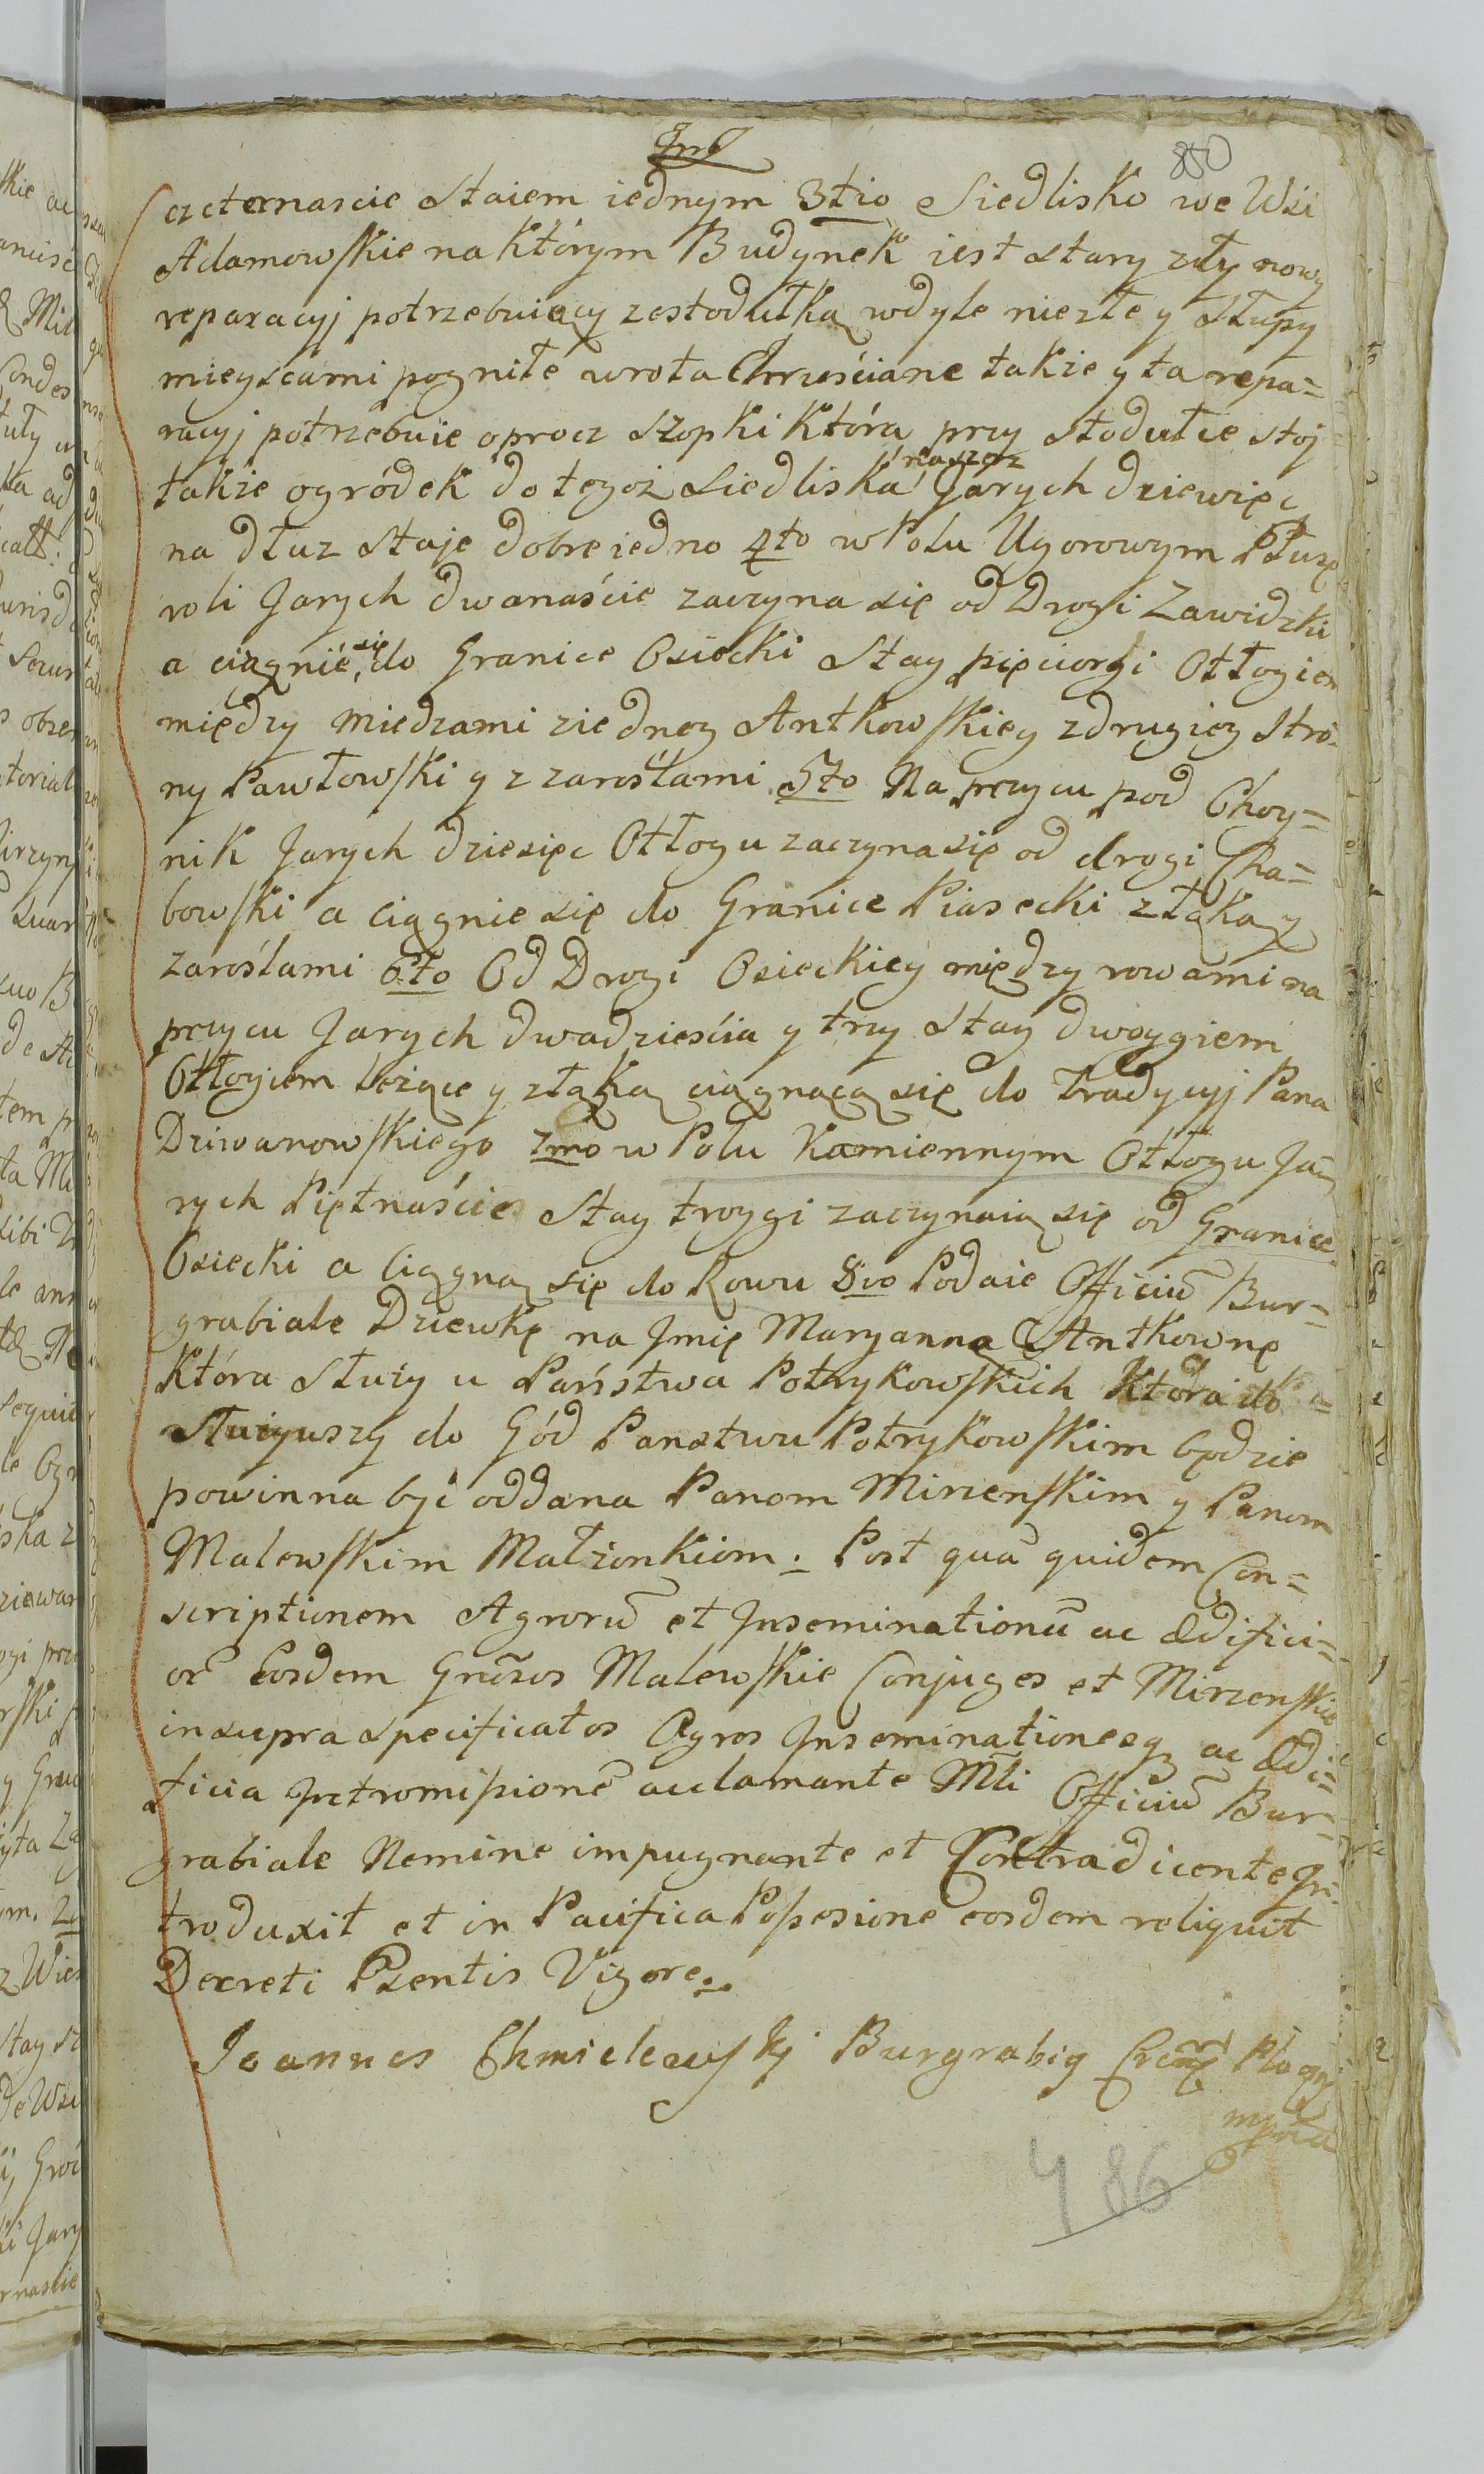 850
czternascie Staiem iednym 3tio Siedlisko we Wsi
Adamowskie na Którym Budynek iest Stary zły nowy
reparacyj potrzebuiący zestodułką wdyle niezłe y Słupy
mieyscami pogniłe wrota Chruściane takze y ta repa=
racyj potrzebuie oprocz Szopki Która przy Stodułce stoj
takze ogródek do tegoz Siedliska naszerz Jarych dziewięc
na dłuz Staje dobre iedno 4to w Polu Ugorowym Płuzę
roli Jarych dwanaście zaczyna się od Drogi Zawidzki
a ciągnie się do Granice Osiecki Stay pięciorgi Otłogiem
między miedzami ziedney Antkowskiey zdrugiey Stro=
ny Pawłowski y z zaroślami 5to Na przycu pod Choy=
nik Jarych dziesięc Otłogu zaczyna się od drogi Cha=
bowski a ciągnie się do Granice Piasecki złąką y
zaroślami 6to Od Drogi Osieckiey między rowami na
przycu Jarych dwadzieścia y trzy Stay dwoygiem
Otłogiem leżące y złąką ciągnącą się do Tradycyj Pana
Dziwanowskiego 7mo w Polu Kamiennym Otłogu Ja=
rych Piętnaście Stay troygi zaczynaią się od Granice
Osiecki a ciągną się do Rowu 8vo Podaie Officiũ Bur=
grabiale Dziewkę na Jmię Maryannę Antkownę
Która Słuzy u Państwa Potrykowskich Która do=
Słuzywszy do Gód Panstwu Potrykowskim będzie
powinna być oddana Panom Mirzenskim y Panom
Malewskim Małzonkiom. Post quã quidem Con=
scriptionem Agrorũ et Inseminationũ ac Ædifici=
orũ Eosdem Gnõsos Malewskie Conjuges et Mirzenskie
in supra specificatos Agros Inseminationesq ac Ædi=
ficia Intromissionẽ acclamante Mli Officiũ Bur=
grabiale Nemine impugnante et Contradicente In=
troduxit et in Pacifica Possesione eosdem reliquit
Decreti Psentis Vigore.
Joannes Chmielewskj Burgrabig
mppria
486